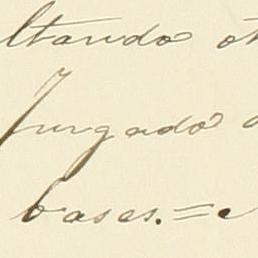 ltando ot
Juzgado d
bases. =